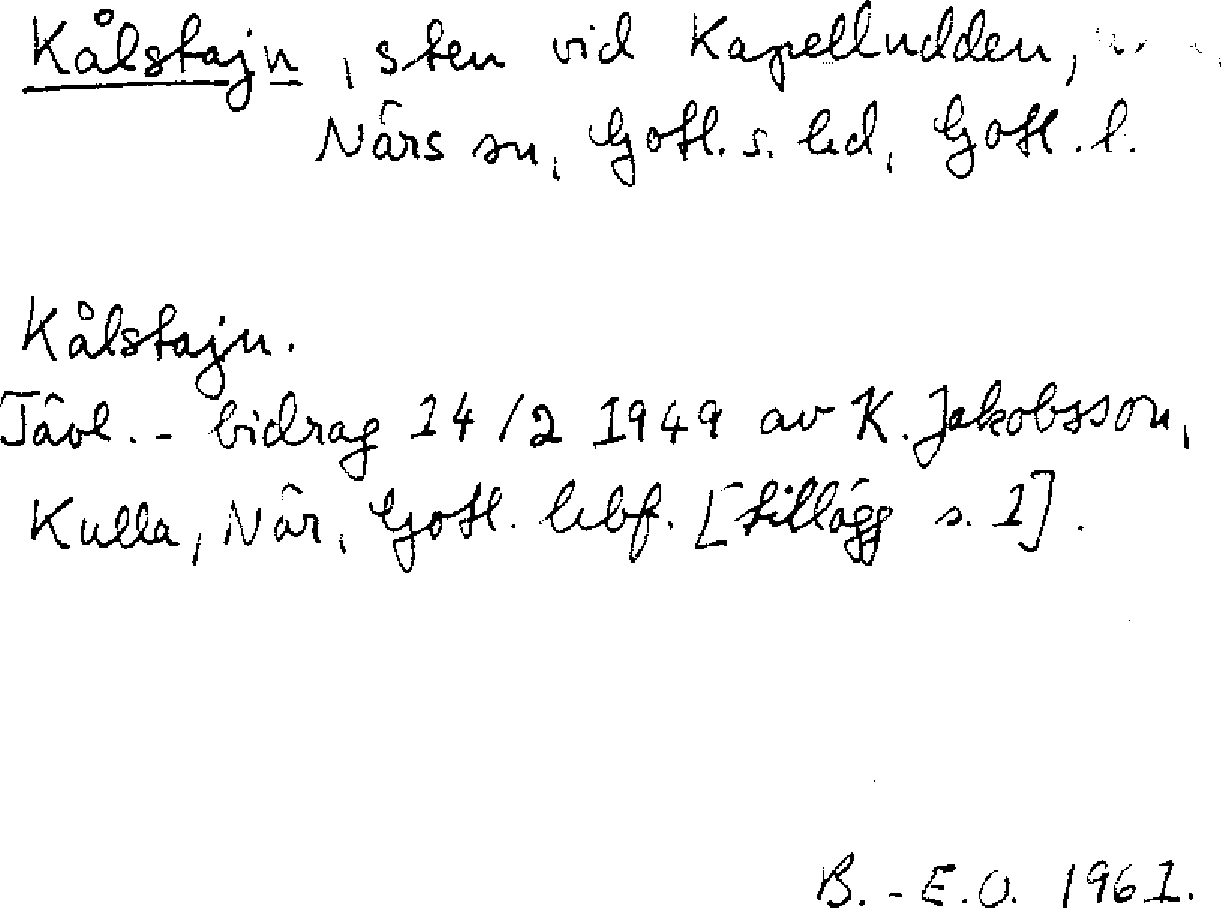 Kålstajn, sten vid Kapelludden,
Närs sn, Gotl. s. hd, Gotl. l.
Kålstajn.
Tävl.-bidrag 14/2 1949 av K. Jakobsson,
Kulla, När, Gotl. lbf. [tillägg s. 1].
B.-E.O. 1961.